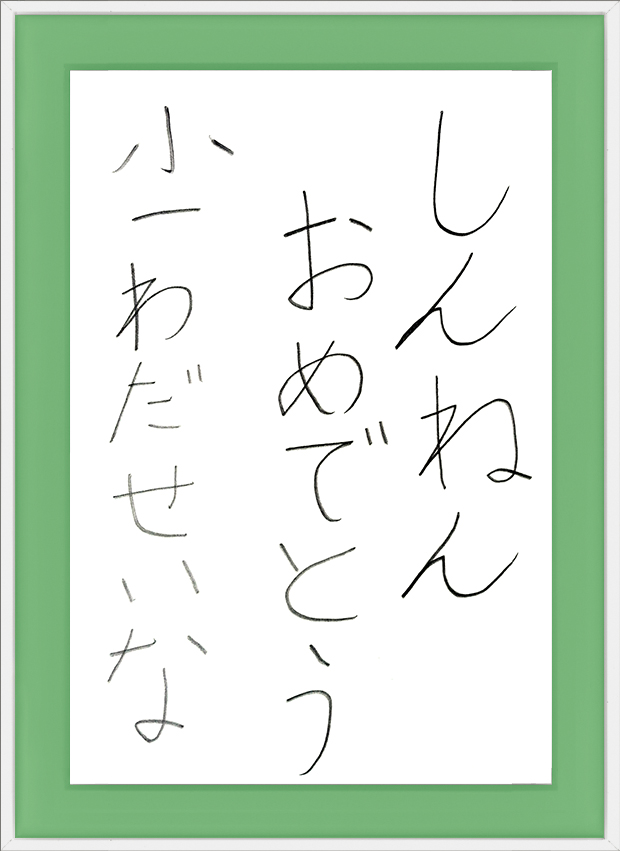 しんねん
おめでとう
小一わだせいな